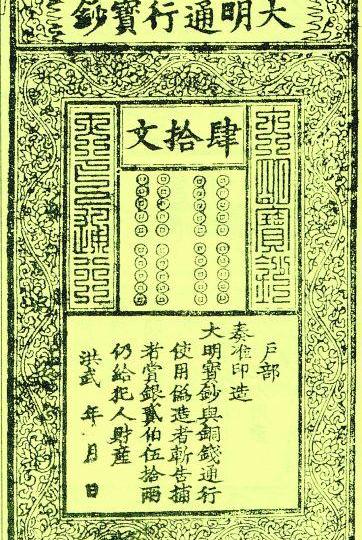 大明通行寶鈔
肆拾文
大明寶鈔
天下通行
戶部
奏准印造
大明寶鈔與銅錢通行
使用僞造者斬告捕
者賞銀貳伯伍拾兩
仍給犯人財產
洪武 年 月 日